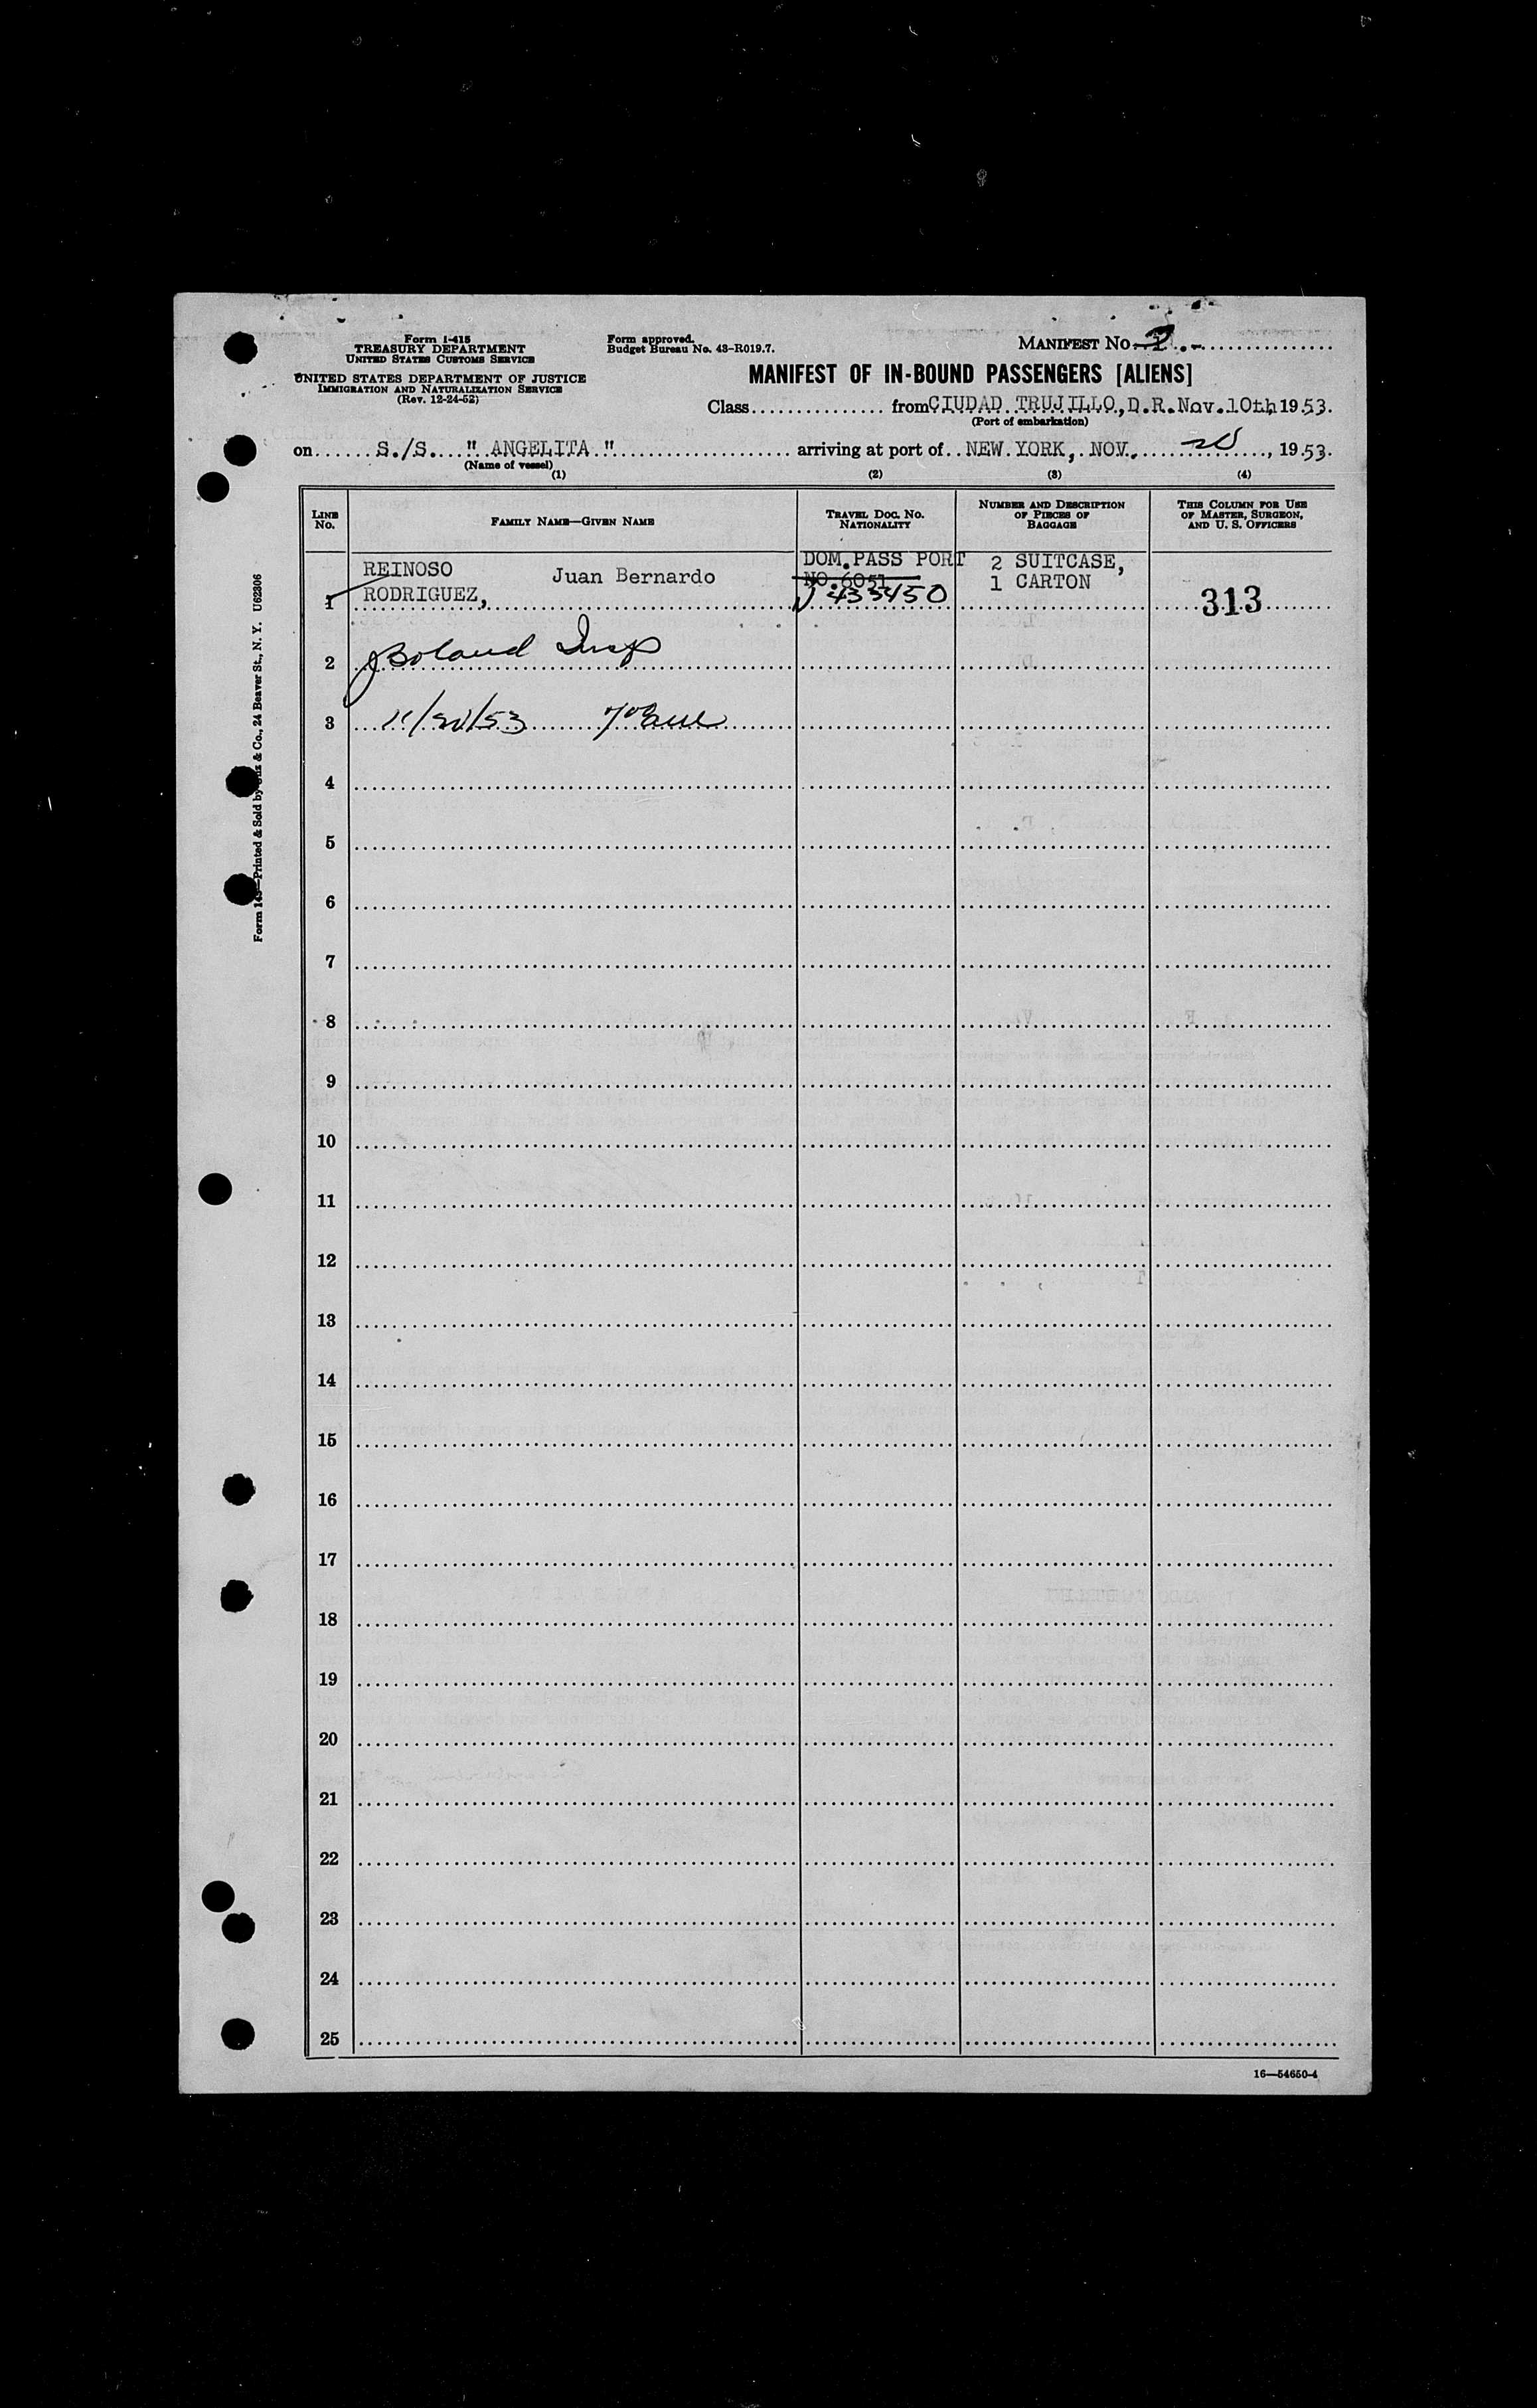 Form I-415
TREASURY DEPARTMENT
UNITED STATES CUSTOMS SERVICE
UNITED STATES DEPARTMENT OF JUSTICE
IMMIGRATION AND NATURALIZATION SERVICE
(Rev. 12-24-52)
Form approved.
Budget Bureau No. 43-R019.7.
MANIFEST No.
MANIFEST OF IN-BOUND PASSENGERS [ALIENS]
Class from CIUDAD TRUJILLO, D.R. Nov. 10th, 1953.
(Port of embarkation)
on S./S. " ANGELITA " arriving at port of NEW YORK, NOV. 20, 1953.
(Name of vessel)
(1) (2) (3) (4)
LINE No. FAMILY NAME—GIVEN NAME TRAVEL DOC. NO. NATIONALITY NUMBER AND DESCRIPTION OF PIECES OF BAGGAGE THIS COLUMN FOR USE OF MASTER, SURGEON, AND U. S. OFFICERS
REINOSO Juan Bernardo DOM. PASS PORT 2 SUITCASE,
NO. 6051 1 CARTON
1 RODRIGUEZ, 435450 313
2 Boland Insp
3 11/20/53
4
5
6
7
8
9
10
11
12
13
14
15
16
17
18
19
20
21
22
23
24
25
16—54650-4
Printed & Sold by & Co., 24 Beaver St., N. Y. U62306